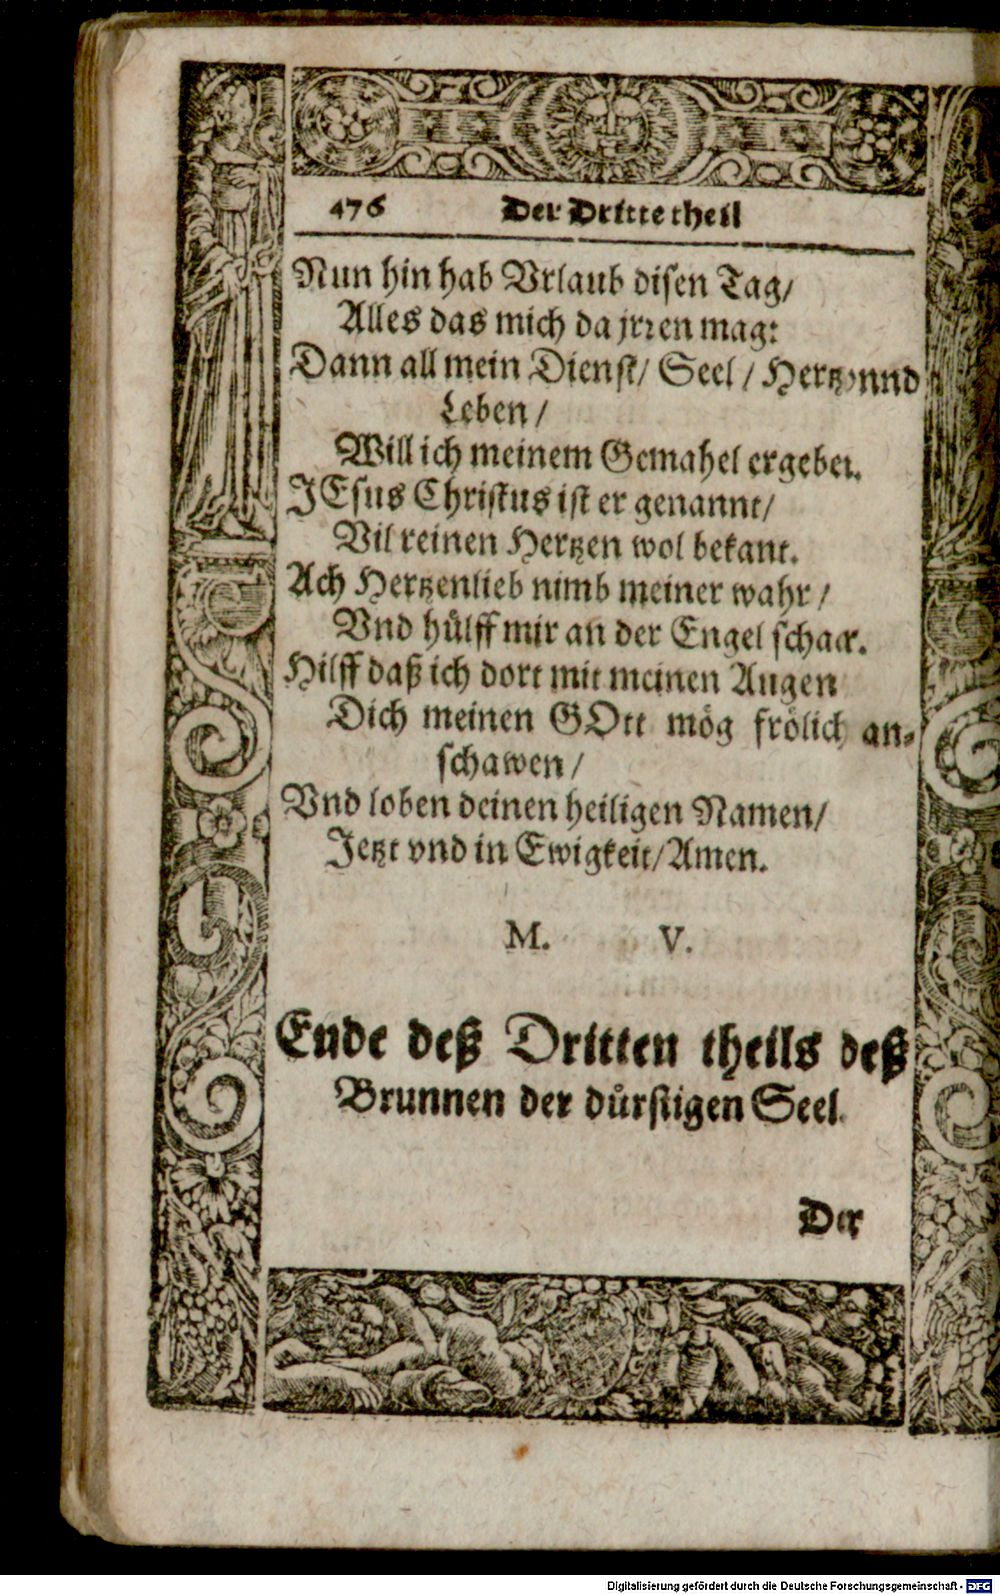 476 Der Dritte theil
Nun hin hab Vrlaub disen Tag/
Alles das mich da jrren mag:
Dann all mein Dienst/ Seel / Hertz vnnd
Leben /
Will ich meinem Gemahel ergeben.
JEsus Christus ist er genannt/
Vil reinen Hertzen wol bekant.
Ach Hertzenlieb nimb meiner wahr /
Vnd hülff mir an der Engel schaar.
Hilff daß ich dort mit meinen Augen
Dich meinen GOtt mög frölich an-
schawen /
Vnd loben deinen heiligen Namen/
Jetzt vnd in Ewigkeit/Amen.
M. V.
Ende deß Dritten theils deß
Brunnen der dürstigen Seel.
Der
Digitalisierung gefördert durch die Deutsche Forschungsgemeinschaft - DFG